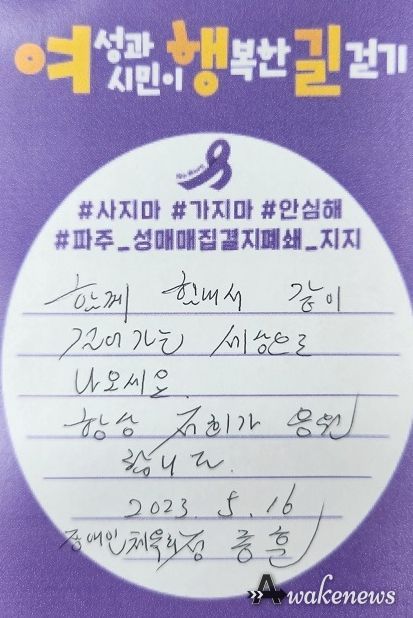 여성과 시민이 행복한 길 걷기
#사지마 #가지마 #안심해
#파주_성매매집결지폐쇄_지지
함께 힘내서 같이
걸어가는 세상으로
나오세요.
항상 저희가 응원
합니다.
2023. 5. 16
장애인체육회
Awakenews